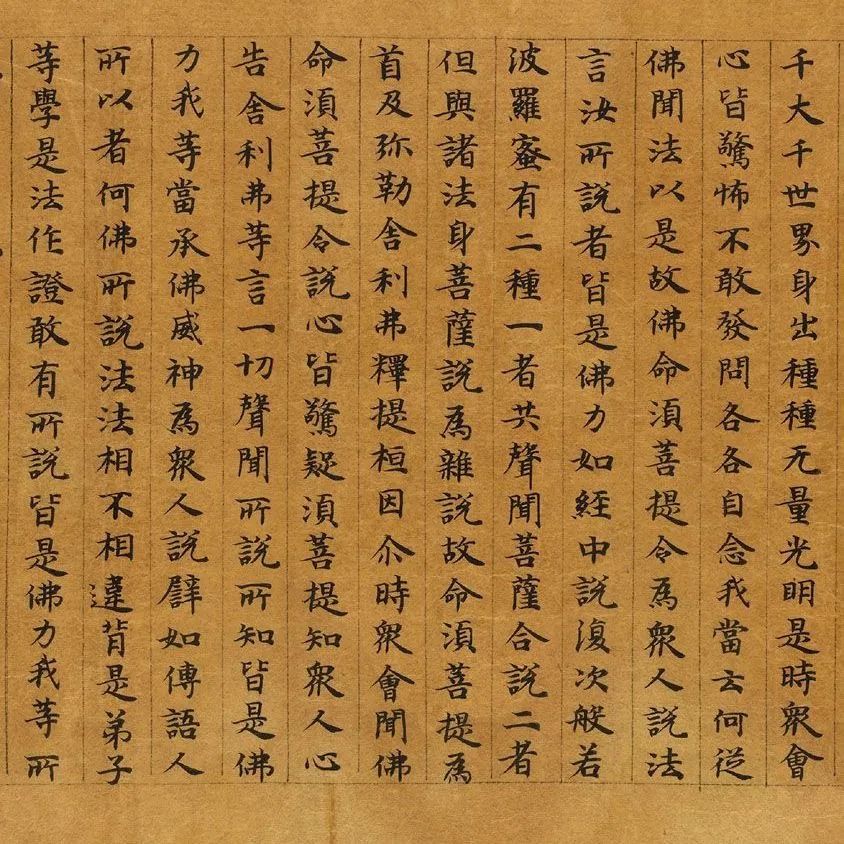 千大千世界身出種種无量光明是時衆會
心皆驚怖不敢發問各各自念我當云何從
佛聞法以是故佛命湏菩提令爲衆人說法
言汝所說者皆是佛力如經中說復次般若
波羅蜜有二種一者共聲聞菩薩合說二者
但與諸法身菩薩說爲雜說故命湏菩提爲
首及弥勒舍利弗釋提桓因尒時衆會聞佛
命湏菩提令說心皆驚疑湏菩提知衆人心
告舍利弗等言一切聲聞所說所知皆是佛
力我等當承佛威神爲衆人說譬如傳語人
所以者何佛所說法法相不相違背是弟子
等學是法作證敢有所說皆是佛力我等所